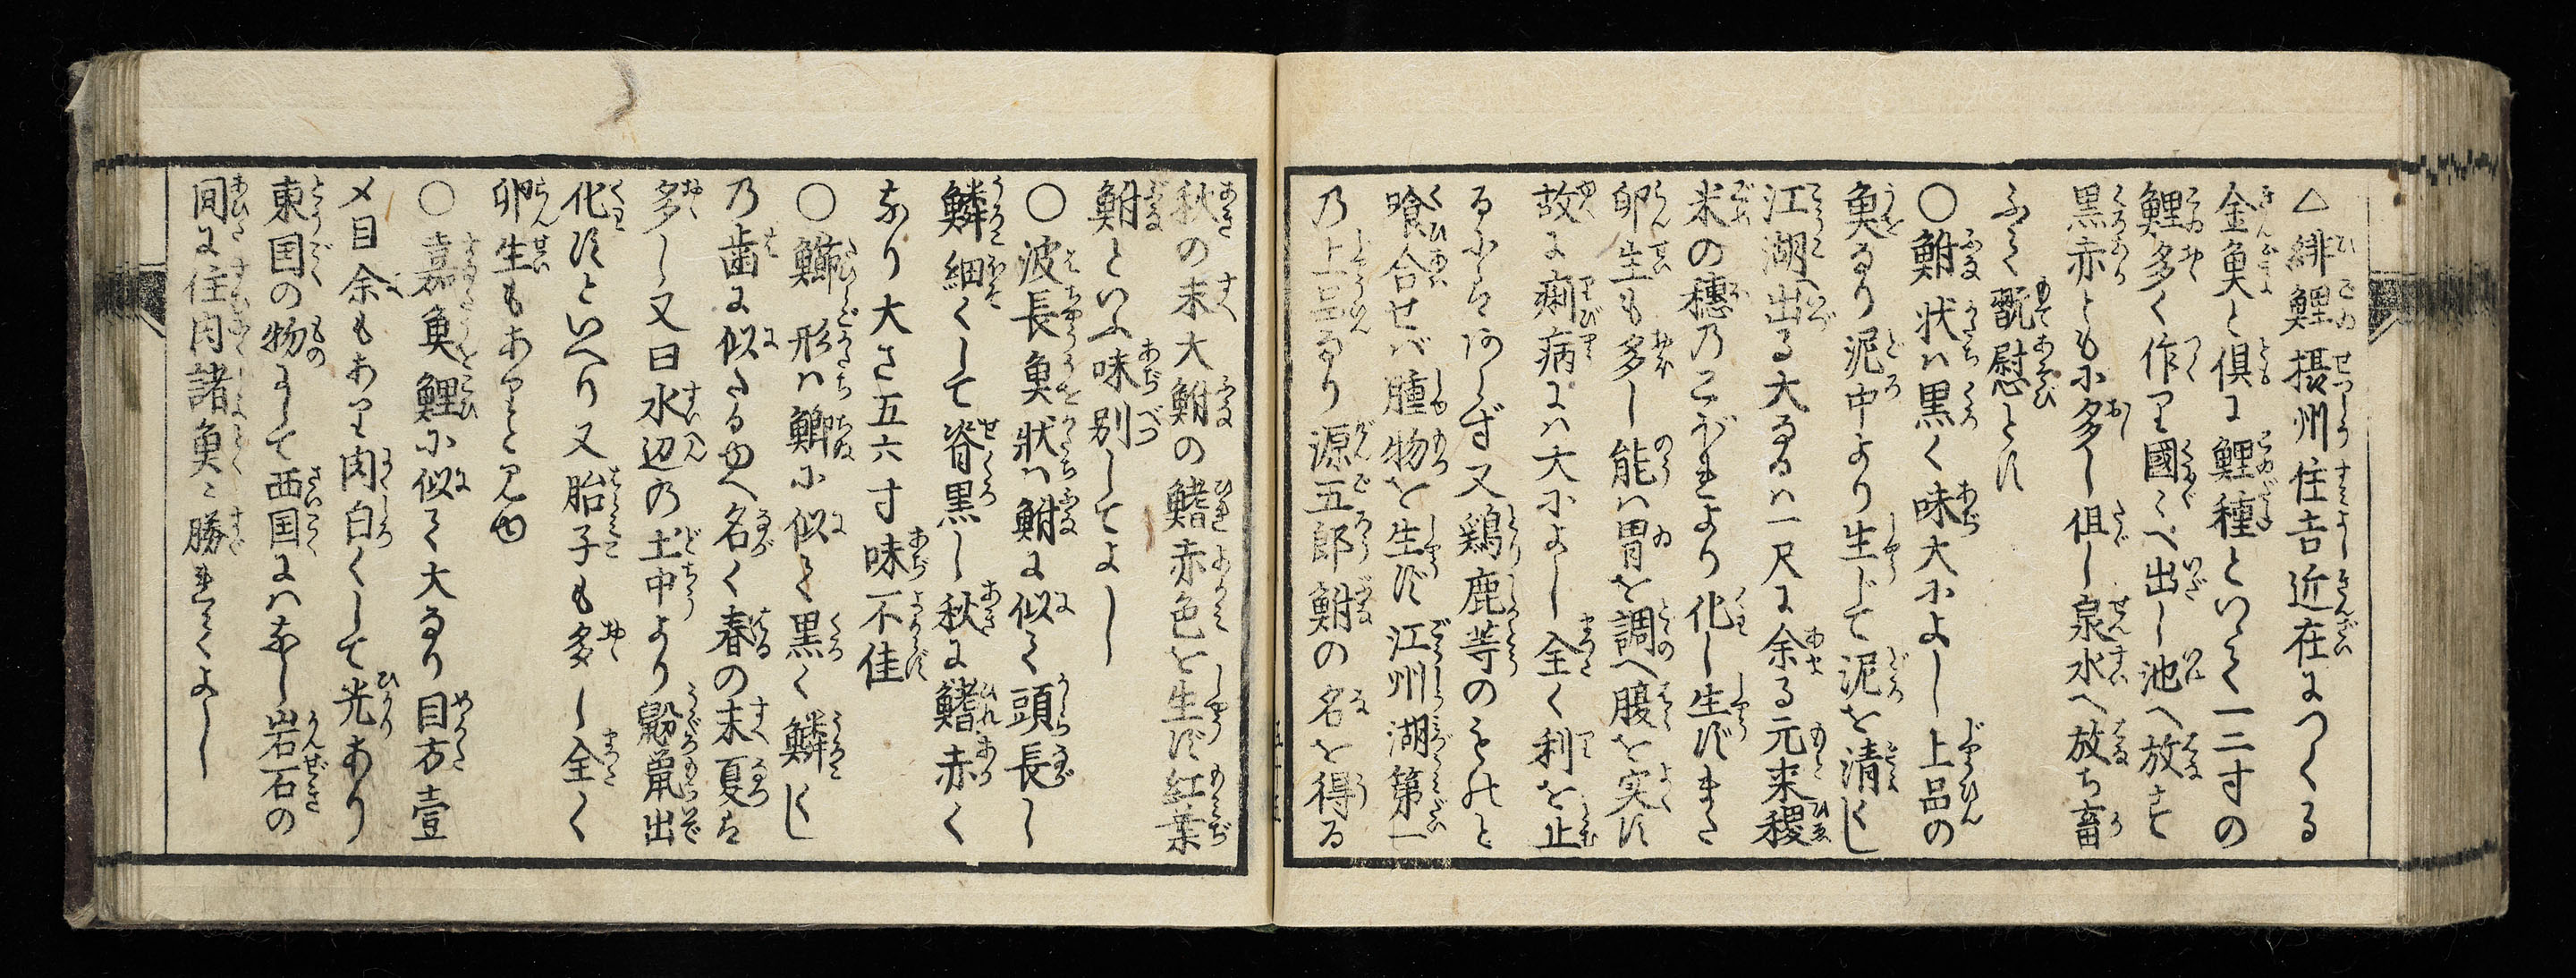 △緋鯉摂州住吉近在につくる
金魚と倶に鯉種といひて一二寸の
鯉多く作りて國〻へ出し池へ放す
黒赤ともに多し但し泉水へ放ち畜
ふて翫慰とす
〇鮒状ハ黒く味大によし上品の
魚なり泥中より生じて泥を清くし
江湖へ出る大なるハ一尺に余る元来稷
米の穂のこぼれより化し生ずまた
卵生も多し能ハ胃を調へ腹を実す
故に痢病にハ大によし全く利を止
るにはあらず又鶏鹿等のものと
喰合せば腫物を生ず江州湖第一
の上品なり源五郎鮒の名を得る
秋の末大鮒の鰭赤色を生ず紅葉
鮒といふ味別してよし
〇波長魚状ハ鮒に似て頭長し
鱗細くして脊黒し秋に鰭赤く
なり大さ五六寸味不佳
〇鰤形ハ鯽に似て黒く鱗くし
の歯に似たるゆへ名く春の末夏は
多し又曰水辺の土中より鼹鼠出
化すといへり又胎子も多し全く
卵生もありと見ゆ
〇嘉魚鯉に似て大なり目方壹
〆目余もあり肉白くして光あり
東国の物にして西国にハなし岩石の
間に住肉諸魚〻勝れてよし